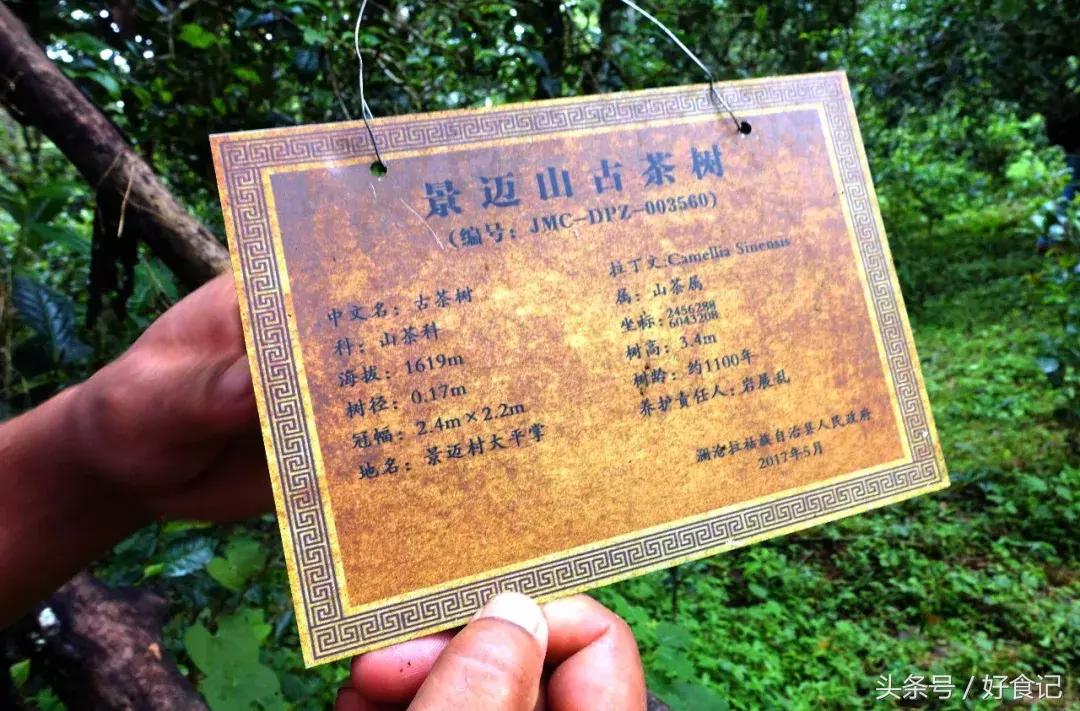 景迈山古茶树
(编号：JMC-DPZ-003560)
中文名：古茶树
科：山茶科
海拔：1619m
树径：0.17m
冠幅：2.4m×2.2m
地名：景迈村大平掌
拉丁文:Camellia Sinensis
属：山茶属
坐标：2456288
6043208
树高：3.4m
树龄：约1100年
养护责任人：岩展乱
澜沧拉祜族自治县人民政府
2017年5月
头条号 / 好食记